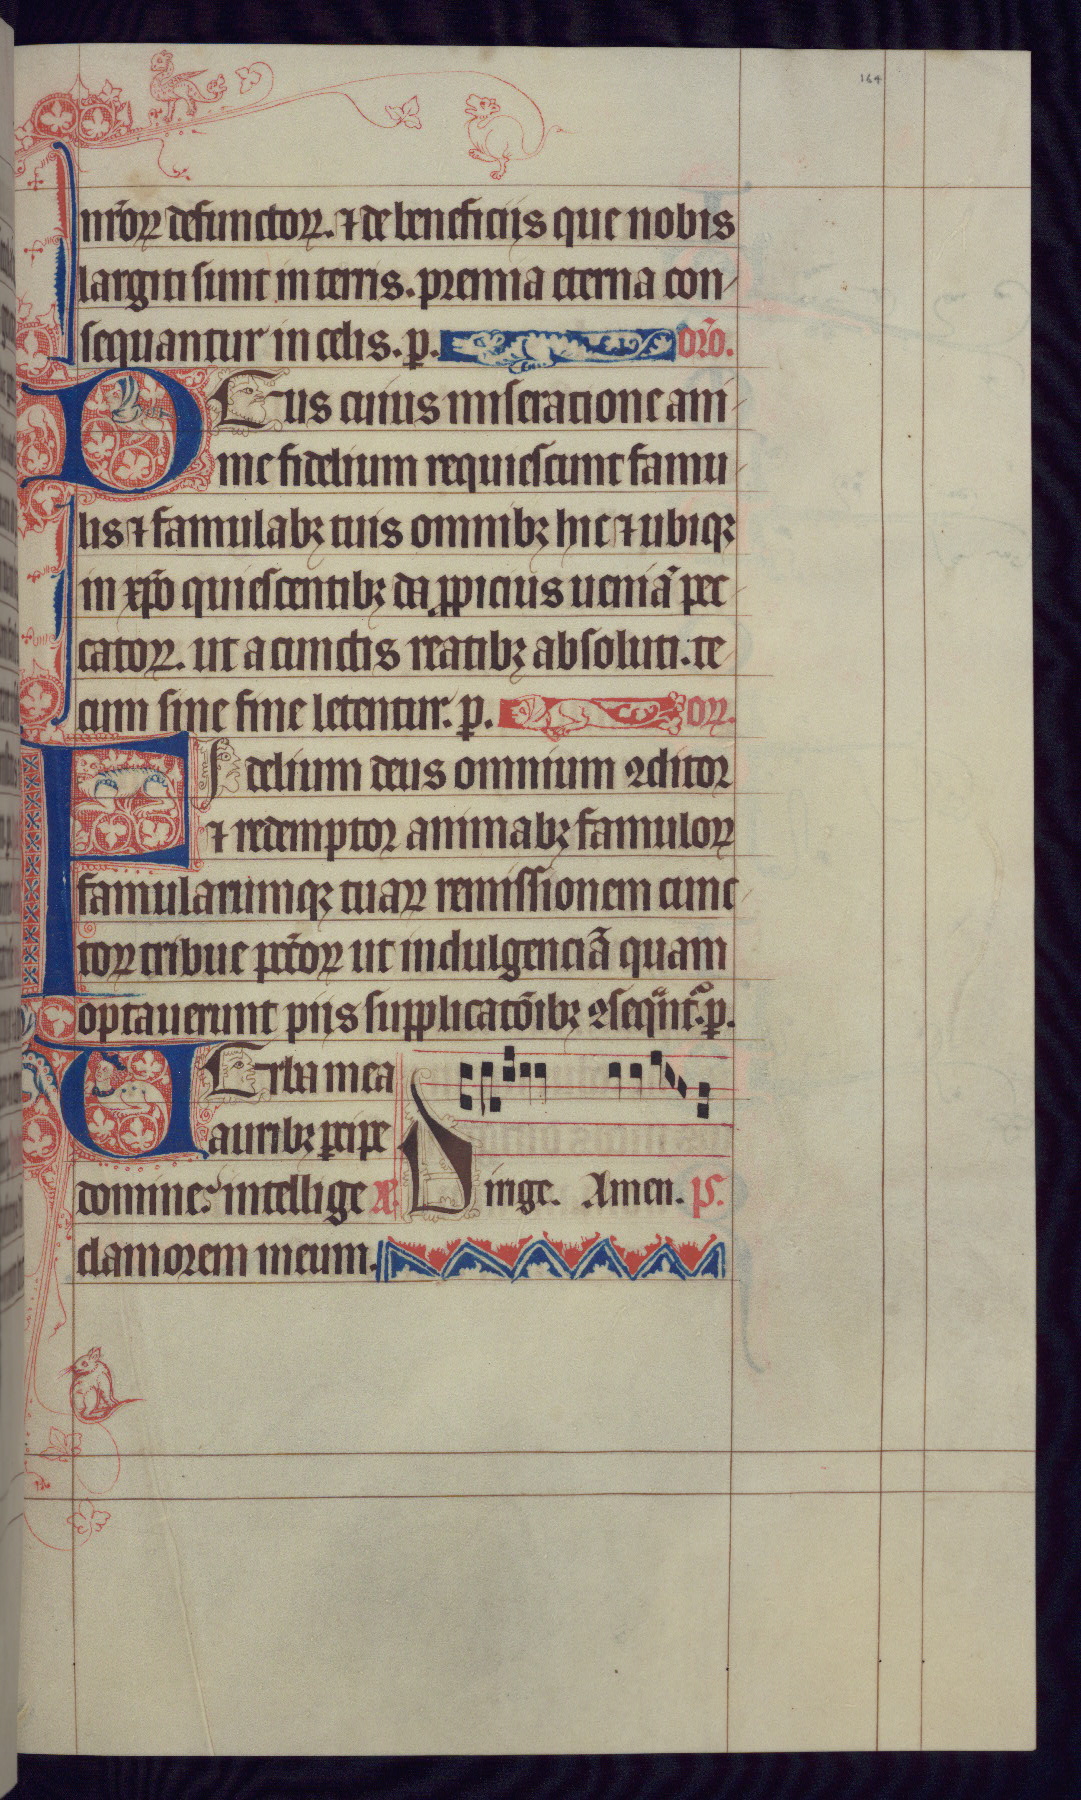 164
nr̄oꝝ defunctoꝝ. ⁊ de beneficiis que nobis
largiti sunt in terris. premia eterna con-
sequantur in celis. p. or̄o.
DEus cuius miseratione ani-
me fidelium requiescunt famu-
lis ⁊ famulabꝫ tuis omnibꝫ hic ⁊ ubiqꝫ
in xp̄o quiescentibꝫ da ꝓpicius ueniā pec-
catoꝝ. ut a cunctis reatibꝫ absoluti. te-
cum sine fine letentur. p. oꝝ.
FIdelium deus omnium ꝯditor
⁊ redemptor animabꝫ famuloꝝ
famularumqꝫ tuaꝝ remissionem cunc-
toꝝ tribue pct̄oꝝ ut indulgenciā quam
optauerunt piis supplicatōibꝫ ꝯseqūnt᷑. p.
UErba mea
auribꝫ ꝑcipe
domine: intellige Dirige. Amen. ps.
clamorem meum.